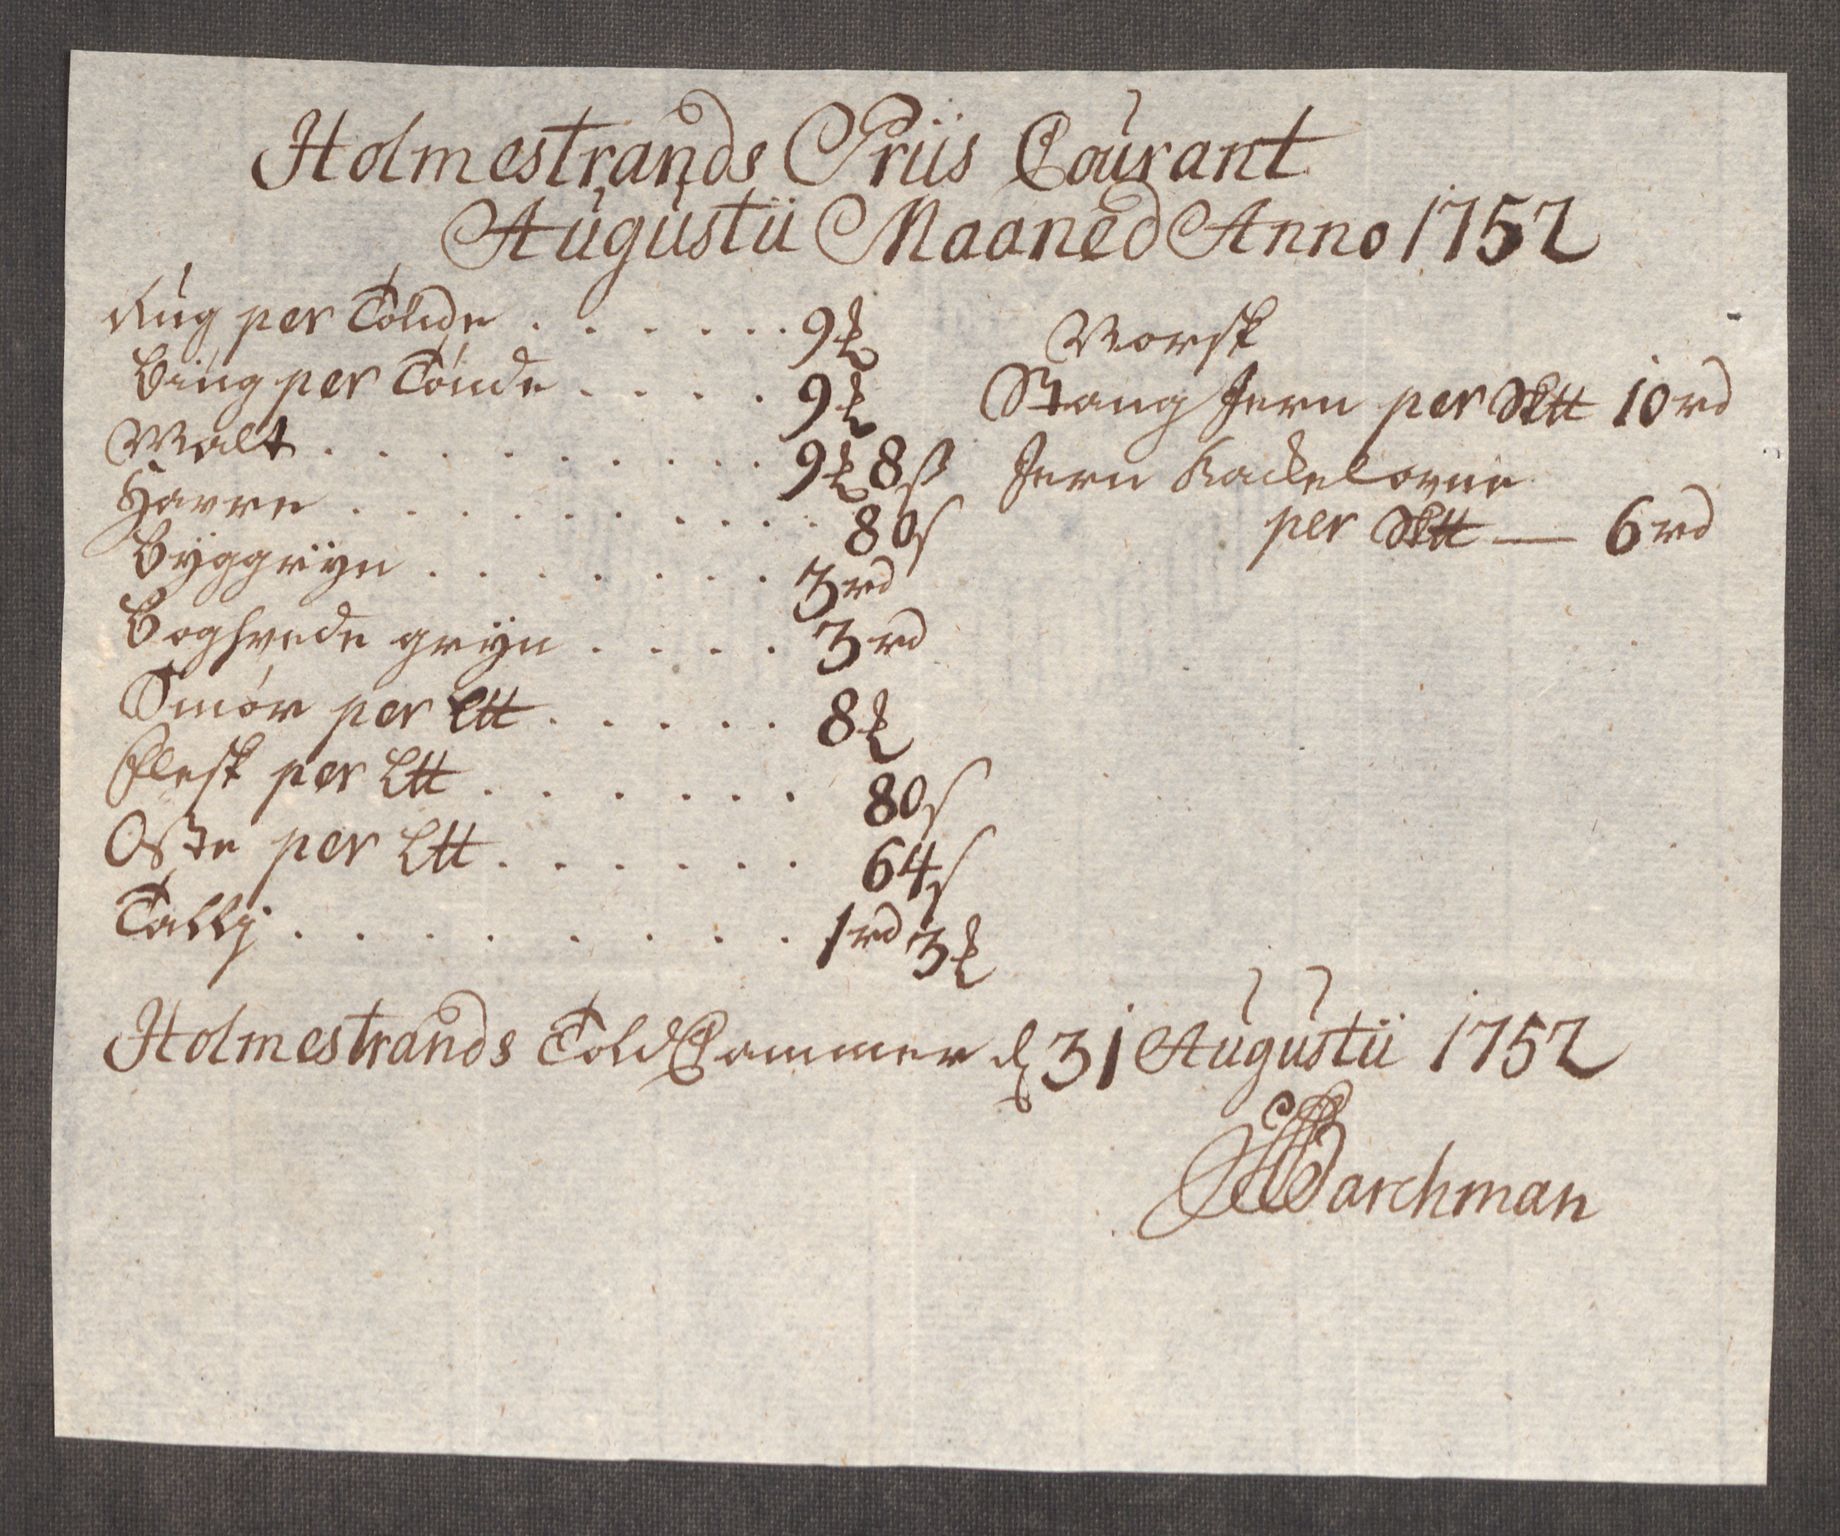 Holmestrands Priis Courant
Augustii Maaned Anno 1752
Rug per Tönde . . . . . . 9 ℔
Biug per Tönde . . . . 9 ℔
Malt . . . . . . . . 9 ℔ 8 ß
Havre . . . . . . . . 80 s
Byggryn . . . . . . 3 rd
Boghvede gryn . . . . 3 rd
Smör per L℔ . . . . . 8 ℔
Flesk per L℔ . . . . . . 80 s
Oste per L℔ . . . . . . 64 s
Tallig . . . . . . . . 1 rd 3 ℔
Norsk
Stang Jern per Sk℔ 10 rd
Jern Kackelovne
per Sk℔ — 6 rd
Holmestrands Told Cammer d 31 Augustii 1752
Barchman